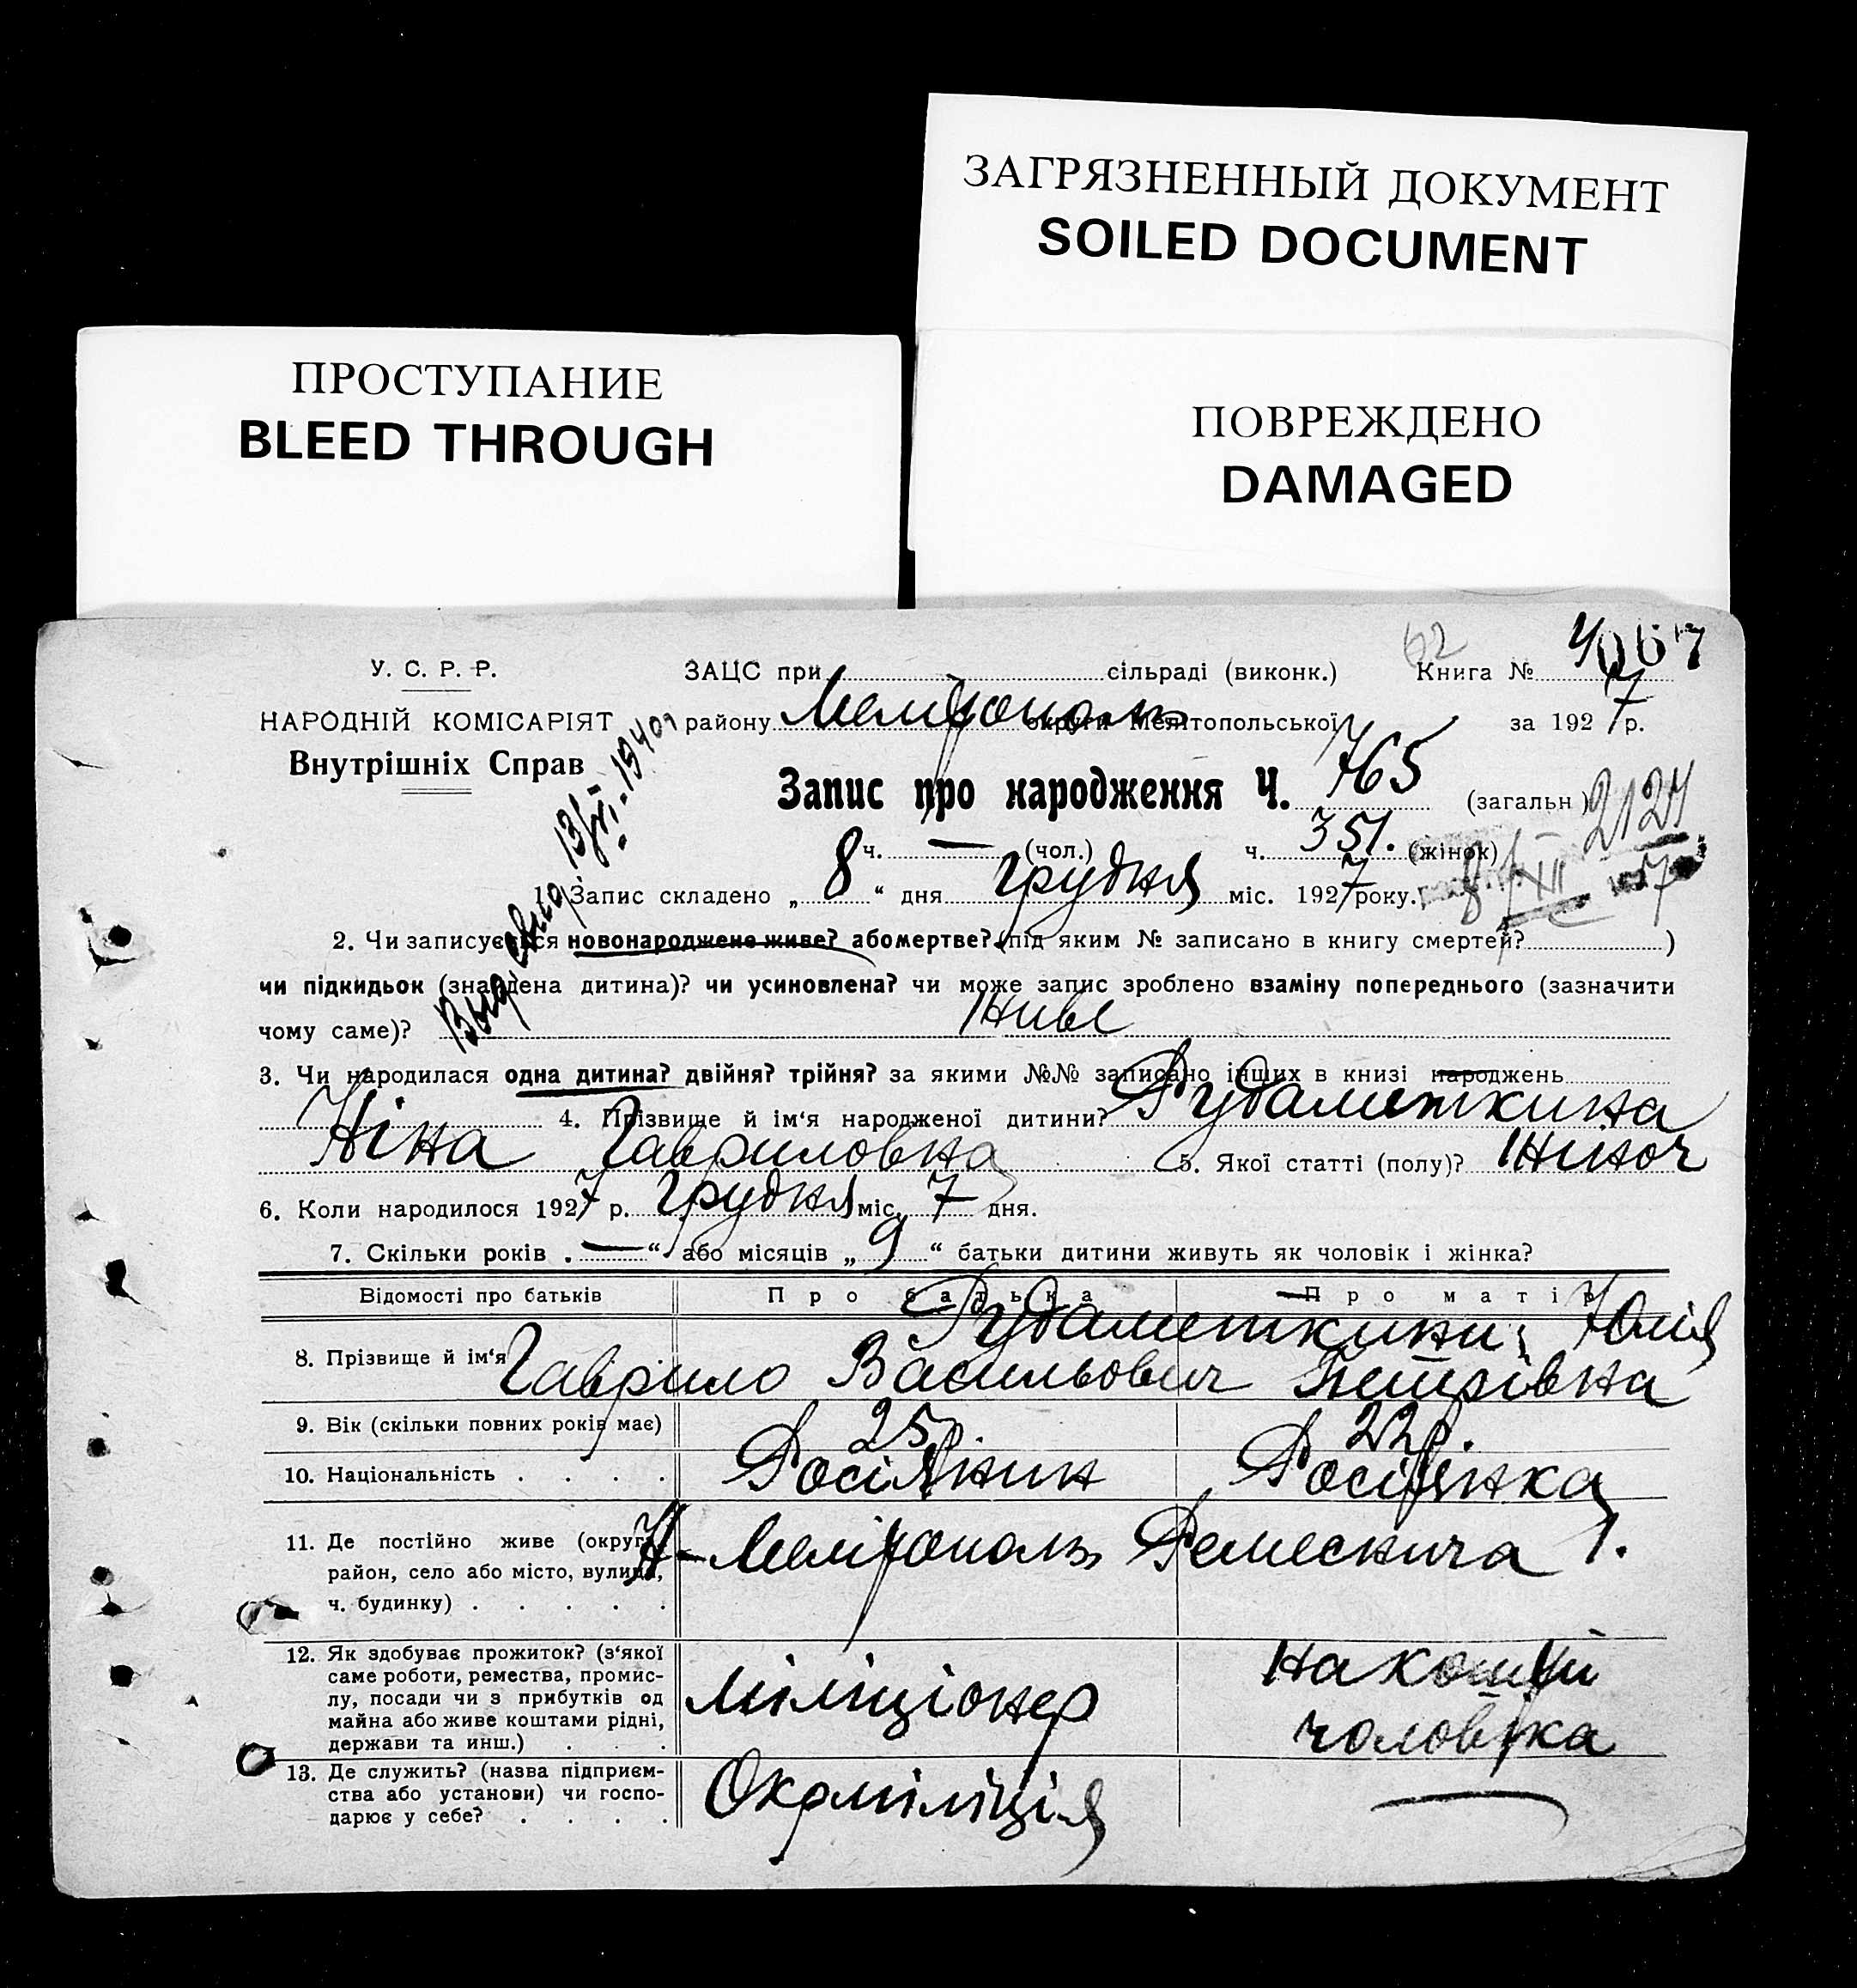 ЗАГРЯЗНЕННЫЙ ДОКУМЕНТ
SOILED DOCUMENT
ПРОСТУПАНИЕ
BLEED THROUGH
ПОВРЕЖДЕНО
DAMAGED
62
У. С. Р. Р. ЗАЦС при сільраді (виконк.) Книга № 7
НАРОДНІЙ КОМІСАРІЯТ району Мелітополь округи Мелітопольської за 1927 р.
Внутрішніх Справ
Запис про народження Ч. 765 (загальн.) 2124
ч. — (чол.) ч. 351. (жінок)
1. Запис складено „8“ дня Грудня міс. 1927 року. 8/XII
Выд. свид. 13/VI-1940
2. Чи записується новонароджене живе? або мертве? (під яким № записано в книгу смертей? )
чи підкидьок (знайдена дитина)? чи усиновлена? чи може запис зроблено взаміну попереднього (зазначити
чому саме)? Живе
3. Чи народилася одна дитина? двійня? трійня? за якими №№ записано інших в книзі народжень
4. Прізвище й ім‘я народженої дитини? Рудаметкина
Ніна Гавриловна 5. Якої статті (полу)? Жіноч
6. Коли народилося 1927 р. Грудня міс. 7 дня.
7. Скільки років „—“ або місяців „9“ батьки дитини живуть як чоловік і жінка?
Відомості про батьків Про батька Про матір
Рудаметкини; Юлія
8. Прізвище й ім‘я Гаврило Васильович Петрівна
9. Вік (скільки повних років має) 25р. 22р.
10. Національність . . . . Росіянин Росіянка
11. Де постійно живе (округа, Н-Мелітополь 1.
район, село або місто, вулиця,
ч. будинку) . . . . .
12. Як здобуває прожиток? (з‘якої
саме роботи, ремества, промис-
лу, посади чи з прибутків од
майна або живе коштами рідні,
держави та инш.) . . .
Міліціонер На кошти
чоловіка
13. Де служить? (назва підприєм-
ства або установи) чи госпо-
дарює у себе? . . . .
Окрміліція —